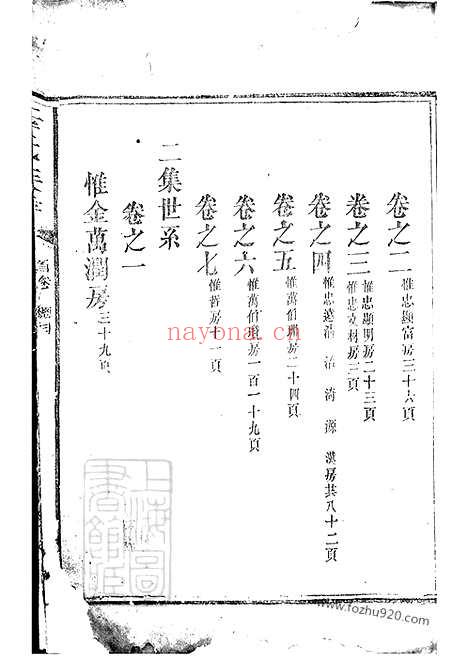 卷之二 惟忠顯富房三十六頁
卷之三 惟忠顯明房二十三頁
惟忠克材房三頁
卷之四 惟忠遠浩 治 海 源 漢房共八十二頁
卷之五 惟萬伯 房二十四頁
卷之六 惟萬伯 房一百一十九頁
卷之七 惟哲房十一頁
二集世系
卷之一
惟金萬潤房三十九頁
首卷
上海圖書館藏
nayona.cn
www.fozhu920.com